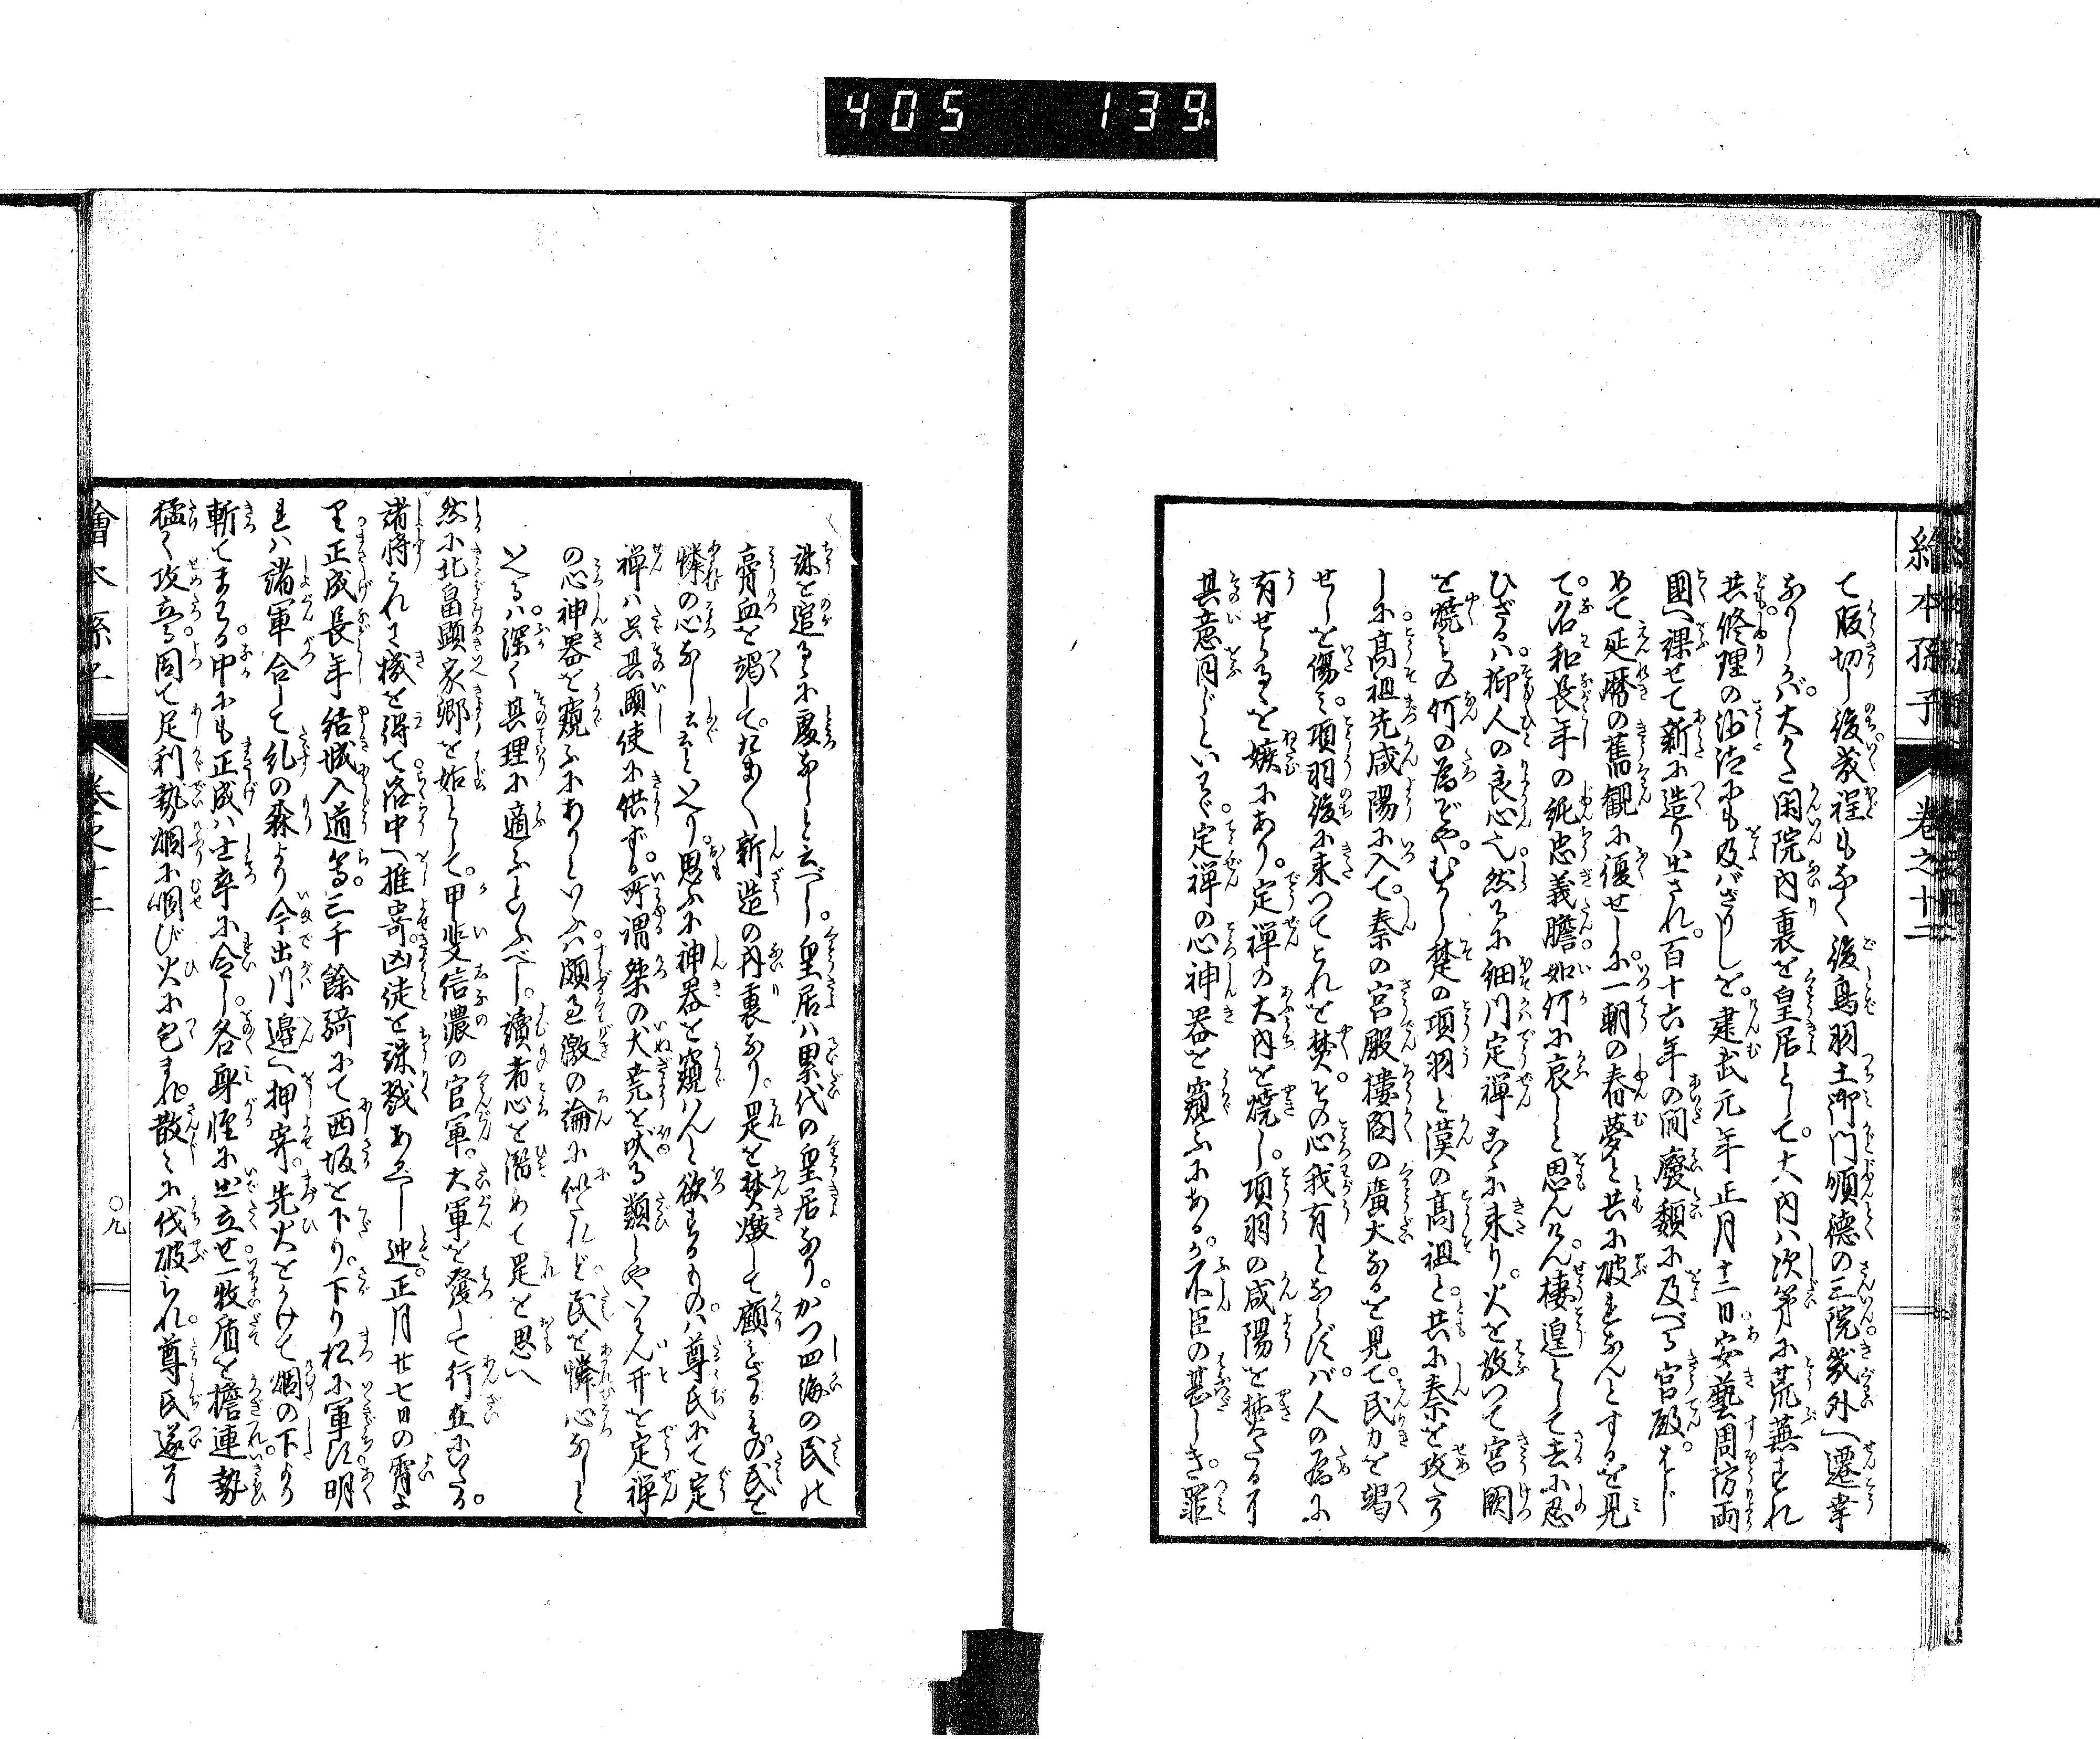 405 139
繪本孫子 卷之十二
て腹切し後幾程もなく後鳥羽土御門順德の三院畿外へ遷幸
ありしかバ。大かた閑院内裏を皇居として。大内ハ次第に荒蕪すれ
共修理の沙汰にも及バざりしを。建武元年正月十二日。安藝周防両
國へ課せて新に造り出され。百十六年の間廢頽に及べる宮殿。はじ
めて延暦の舊観に復せしに。一朝の春夢と共に破れなんとするを見
て。名和長年の純忠義膽。如何に哀しと思んけん。棲遑として去に忍
ひざるハ。抑人の良心也。然るに細川定禅こゝに来り。火を放つて宮闕
を燒しもの何の為ぞや。むかし楚の項羽と漢の高祖と。共に秦を攻たり
しに。高祖先咸陽に入て。秦の宮殿樓閣の廣大なるを見て。民力を竭
せしを傷ミ。項羽後に来つてこれを焚。その心我有とならずバ。人の為に
有せらるゝを嫉にあり。定禅の大内を燒し。項羽の咸陽を焚たる事
其意同じといへど。定禅の心神器を窺ふにあるか。不臣の甚しき。罪
誅を遁るゝに處なしと云べし。皇居ハ累代の皇居なり。かつ四海の民の
膏血を竭して。たまたま新造の内裏なり。是を焚燬して顧ミざるもの。民を
憐の心なし云云といへり。思ふに神器を窺ハんと欲するものハ。尊氏にて定
禅ハ只其頤使に供ずる。所謂桀の犬尭を吠る類しやいとゞ。定禅
の心神器を窺ふにありといふハ。頗る過激の論に似たれど。民を憐心なしと
いへるハ。深く其理に適ふといふべし。讀者心を潜めて是を思へ
然に北畠顕家卿を始として。甲斐信濃の官軍。大軍を發して行在に至る。
諸將これに機を得て洛中へ推寄。凶徒を誅戮あるべし迚。正月廿七日の霄よ
り正成長年結城入道等。三千餘騎にて西坂を下り。下り松に軍し明
れハ諸軍合して糺の森より今出川邉へ押寄。先火をかけて烟の下より
斬てまはる中にも正成ハ士卒に令し。各身軽に出立せ一枚盾を擔連。勢
猛く攻立る。固て足利勢烟に咽び火に包まれ。散々に伐破られ。尊氏遂に
繪本孫子 卷之十二 〇九